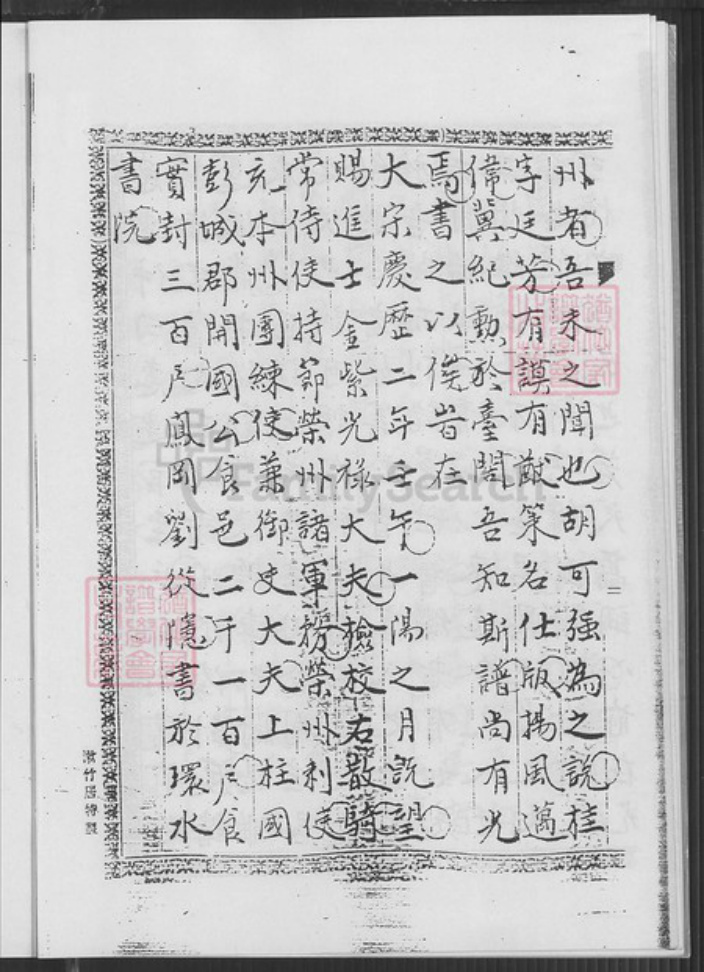 州者吾未之聞也胡可强為之說桂
字廷芳有謨有猷策名仕版揚風邁
偉冀紀勳於臺閣吾知斯譜尚有光
焉書之以俟昔在
大宋慶歷二年壬午一陽之月既望
賜進士金紫光祿大夫檢校右散騎
常侍使持節榮州諸軍榮州刺使
充本州團練使兼御史大夫上柱國
彭城郡開國公食邑二千一百戶食
實封三百戶鳳岡劉從隱書於環水
書院
FamilySearch